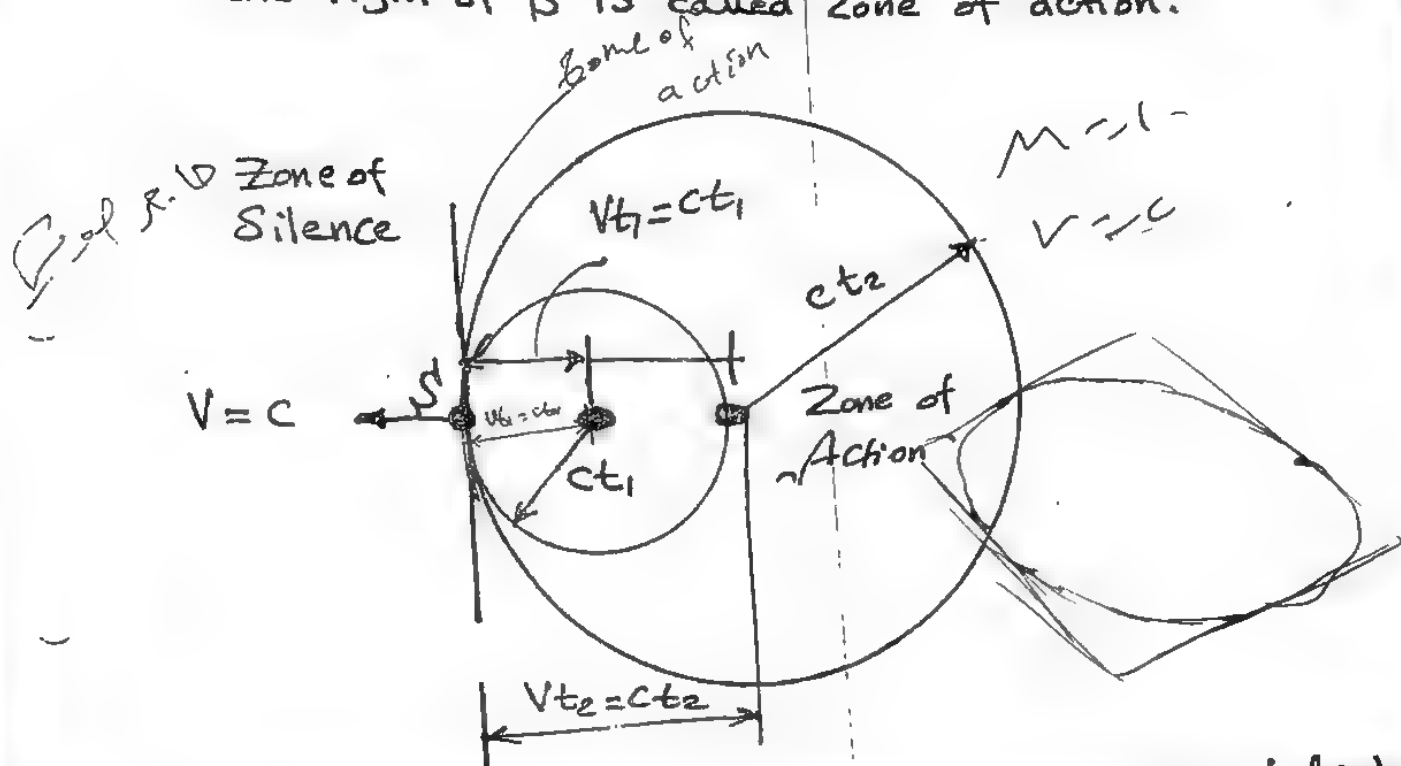 the right of S is called zone of action.
zone of
action
M = 1
V = c
Zone of
Silence
Vt₁ = ct₁
ct₂
S
V = C
Vt₁ = ct₁
Zone of
Action
ct₁
Vt₂ = ct₂